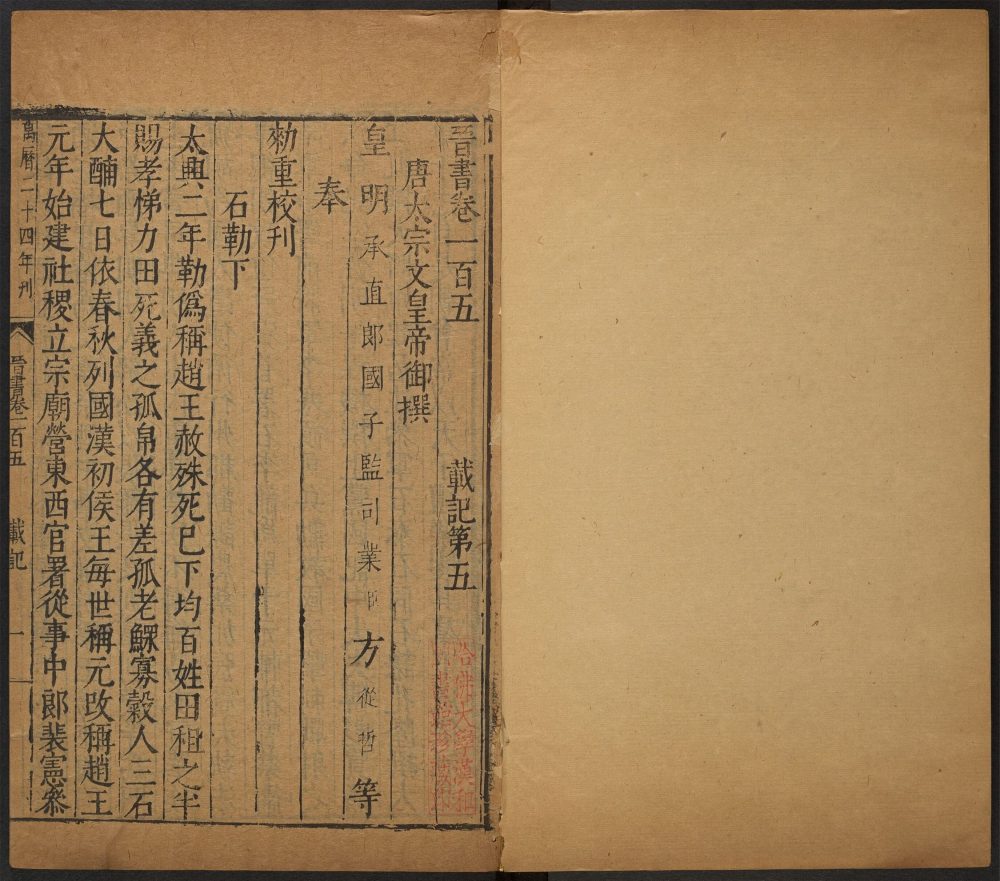 晉書卷一百五　載記第五
唐太宗文皇帝御撰
皇明承直郎國子監司業臣方從哲等
奉
勑重校刊
石勒下
太興二年勒僞稱趙王赦殊死已下均百姓田租之半
賜孝悌力田死義之孤帛各有差孤老鰥寡穀人三石
大酺七日依春秋列國漢初侯王每世稱元攺稱趙王
元年始建社稷立宗廟營東西官署從事中郎裴憲叅
萬曆二十四年刊　晉書卷一百五　載記　一
哈佛大學漢和
圖書館珍藏印